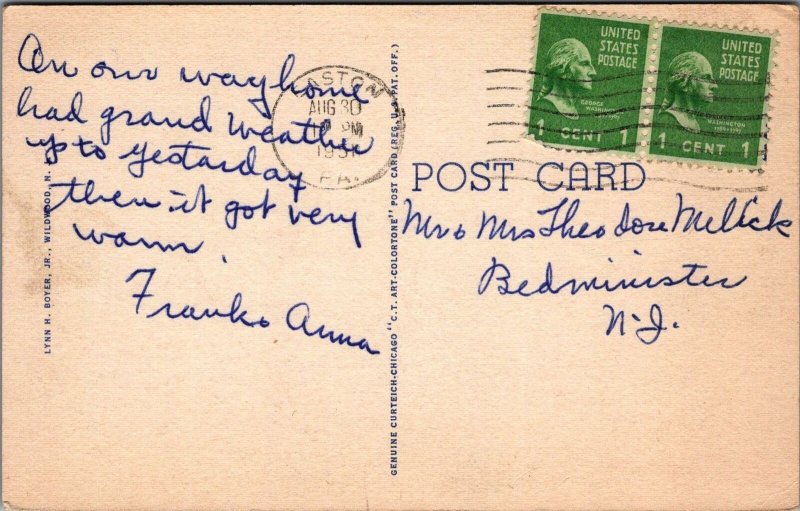 On our way home
had grand weather
up to yestarday
then it got very
warm.
Frank & Anna
LYNN H. BOYER, JR., WILDWOOD, N.
GENUINE CURTEICH-CHICAGO "C.T. ART-COLORTONE" POST CARD (REG. U.S. PAT. OFF.)
EASTON
AUG 30
PM
1951
PA.
UNITED
STATES
POSTAGE
GEORGE
WASHINGTON
1 CENT 1
UNITED
STATES
POSTAGE
WASHINGTON
1789-1797
1 CENT 1
POST CARD
Mr & Mrs Theodore Mellick
Bedminister
N.J.